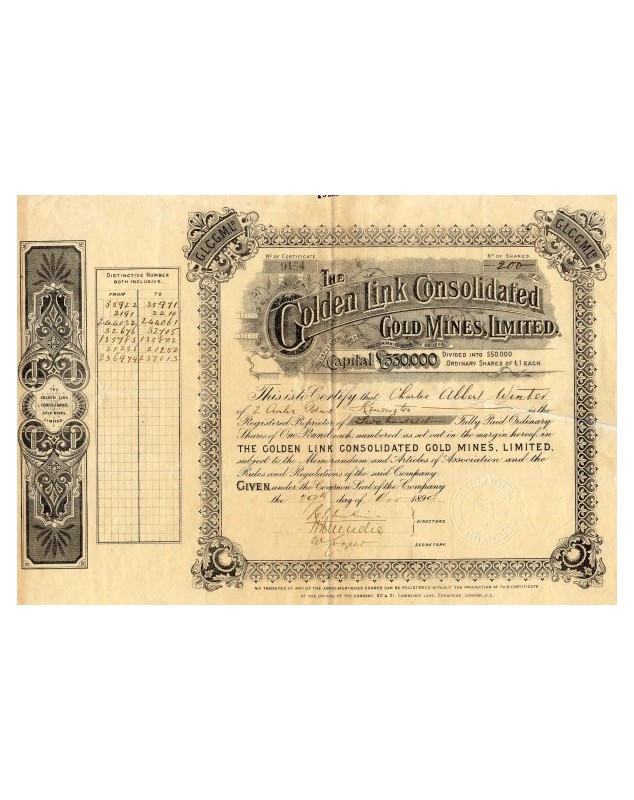 G.L.C.G.M.Lᴰ
G.L.C.G.M.Lᴰ
Nº OF CERTIFICATE
Nº OF SHARES.
9154
200
THE
Golden Link Consolidated
GOLD MINES, LIMITED.
Capital £550,000
DIVIDED INTO 550,000
ORDINARY SHARES OF £1 EACH.
DISTINCTIVE NUMBER
BOTH INCLUSIVE.
FROM TO
35922 35971
2191 2210
244032 244061
32676 32705
135783 135802
21236 21250
236979 237013
THE
GOLDEN LINK
CONSOLIDATED
GOLD MINES,
LIMITED
This is to Certify that Charles Albert Winter
of 2 Kensington is the
Registered Proprietor of Two hundred Fully Paid Ordinary
Shares of One Pound each, numbered as set out in the margin hereof, in
THE GOLDEN LINK CONSOLIDATED GOLD MINES, LIMITED,
subject to the Memorandum and Articles of Association and the
Rules and Regulations of the said Company.
GIVEN under the Common Seal of the Company
the day of Nov 189
DIRECTORS.
SECRETARY.
NO TRANSFER OF ANY OF THE ABOVE-MENTIONED SHARES CAN BE REGISTERED WITHOUT THE PRODUCTION OF THIS CERTIFICATE
AT THE OFFICES OF THE COMPANY, 20 & 21, LAWRENCE LANE, CHEAPSIDE, LONDON, E.C.